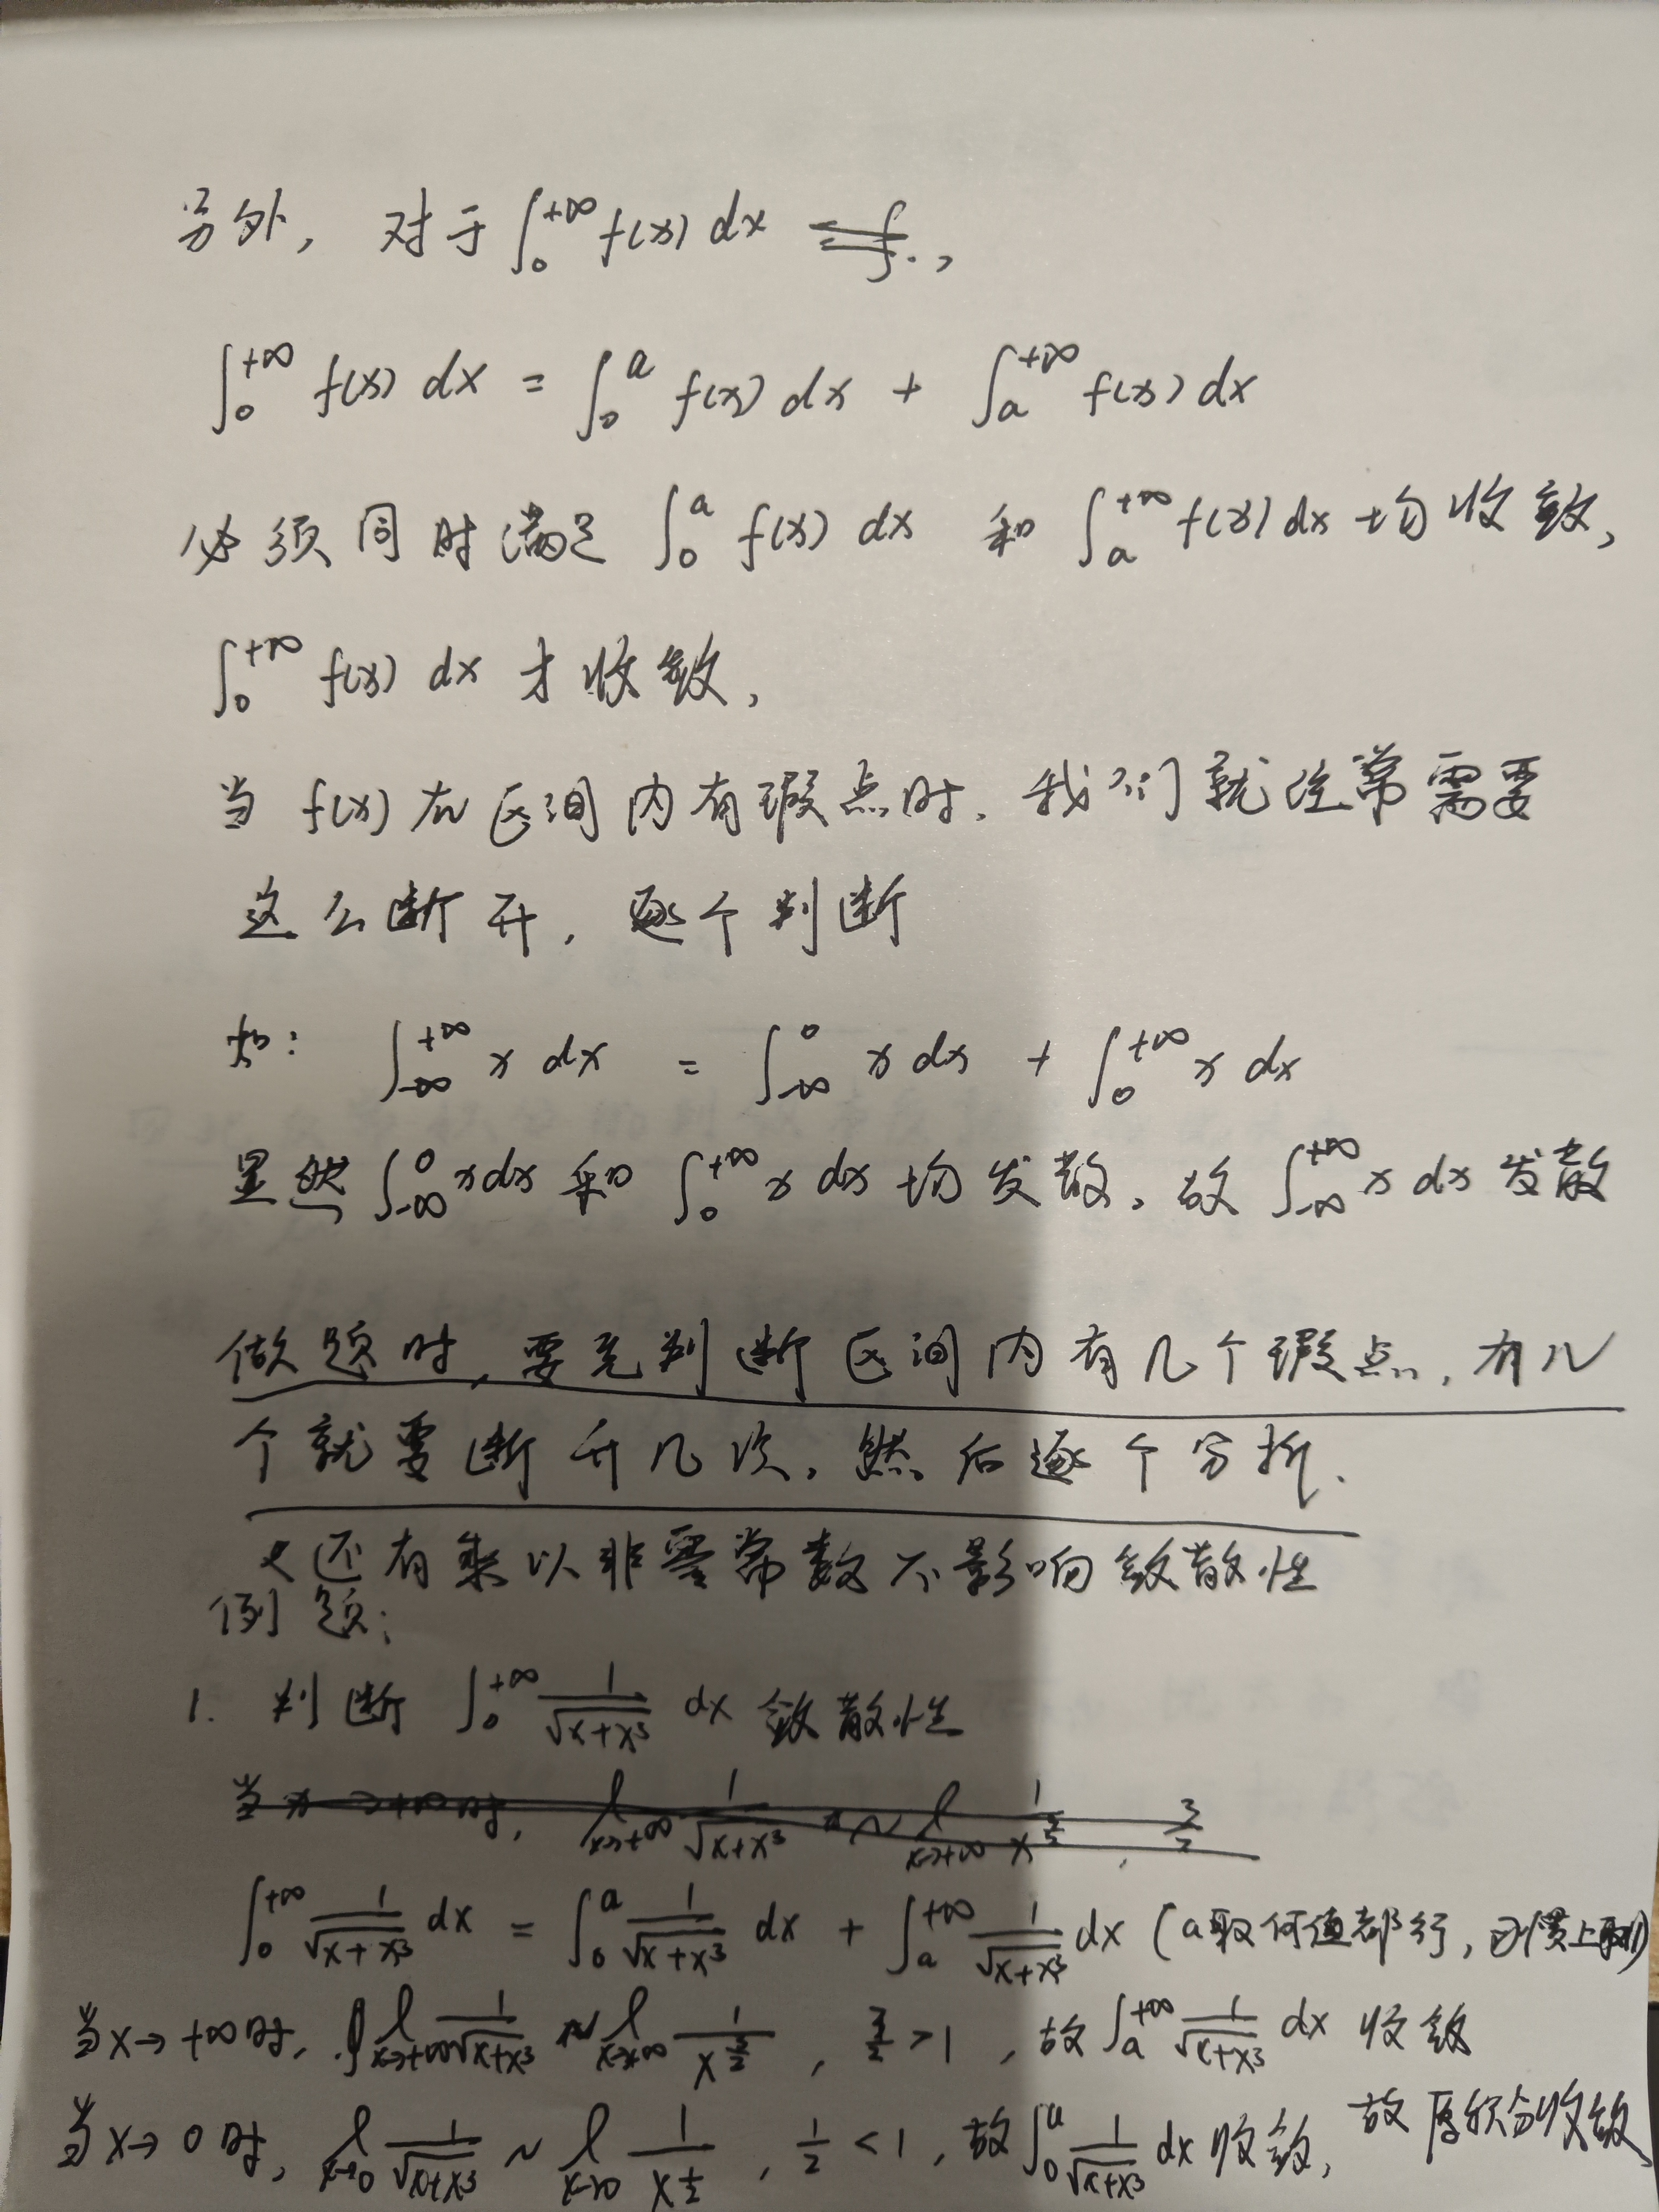 另外，对于∫₀^{+∞} f(x) dx ，
∫₀^{+∞} f(x) dx = ∫₀^a f(x) dx + ∫_a^{+∞} f(x) dx
必须同时满足 ∫₀^a f(x) dx 和 ∫_a^{+∞} f(x) dx 均收敛，
∫₀^{+∞} f(x) dx 才收敛，
当 f(x) 在区间内有瑕点时，我们就经常需要
这么断开，逐个判断
如： ∫_{-∞}^{+∞} x dx = ∫_{-∞}^0 x dx + ∫₀^{+∞} x dx
显然 ∫_{-∞}^0 x dx 和 ∫₀^{+∞} x dx 均发散，故 ∫_{-∞}^{+∞} x dx 发散
做题时，要先判断区间内有几个瑕点，有几
个就要断开几次，然后逐个分析．
还有乘以非零常数不影响敛散性
例题：
1. 判断 ∫₀^{+∞} 1/√(x+x³) dx 敛散性
当 x→+∞时， l_{x→+∞} 1/√(x+x³) ~ l_{x→+∞} 1/x^{3/2} ， 3/2
∫₀^{+∞} 1/√(x+x³) dx = ∫₀^a 1/√(x+x³) dx + ∫_a^{+∞} 1/√(x+x³) dx (a取何值都行，习惯上取1)
当x→+∞时， l_{x→+∞} 1/√(x+x³) ~ l_{x→+∞} 1/x^{3/2} ， 3/2 > 1 ，故 ∫_a^{+∞} 1/√(x+x³) dx 收敛
当x→0时， l_{x→0} 1/√(x+x³) ~ l_{x→0} 1/x^{1/2} ， 1/2 < 1 ，故 ∫₀^a 1/√(x+x³) dx 收敛，故原积分收敛